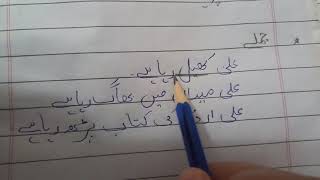 جملے
علی کھیل رہا ہے۔
علی میدان میں بھاگ رہا ہے
علی اردو کی کتاب پڑھ رہا ہے